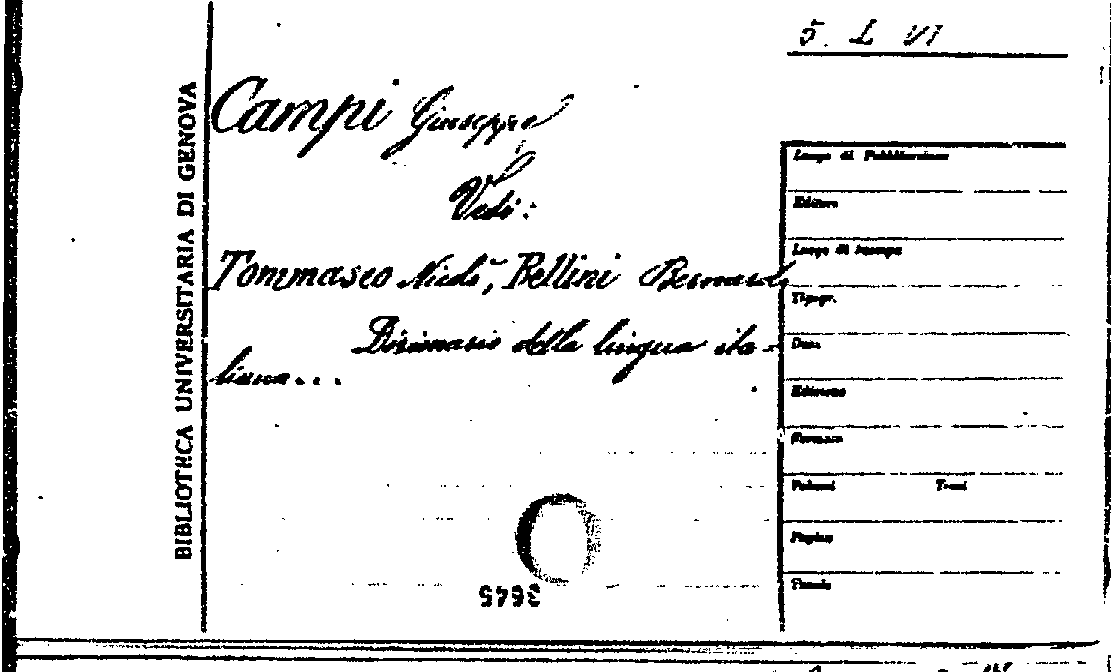 5. L VI
BIBLIOTECA UNIVERSITARIA DI GENOVA
Campi Giuseppe
Vedi:
Tommaseo Nicolò, Bellini Bernardo
Dizionario della lingua ita-
liana...
Luogo di Pubblicazione
Editore
Luogo di stampa
Tipogr.
Data
Edizione
Formato
Volumi Tomi
Pagine
Tavole
3645